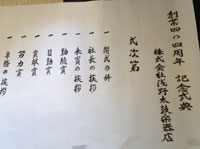 創業四〇四周年 記念式典
株式会社浅野太鼓楽器店
式次第
一 開式の辞
一 社長の挨拶
一 来賓の挨拶
一 勤続賞
一 皆勤賞
一 貢献賞
一 努力賞
一 専務の挨拶